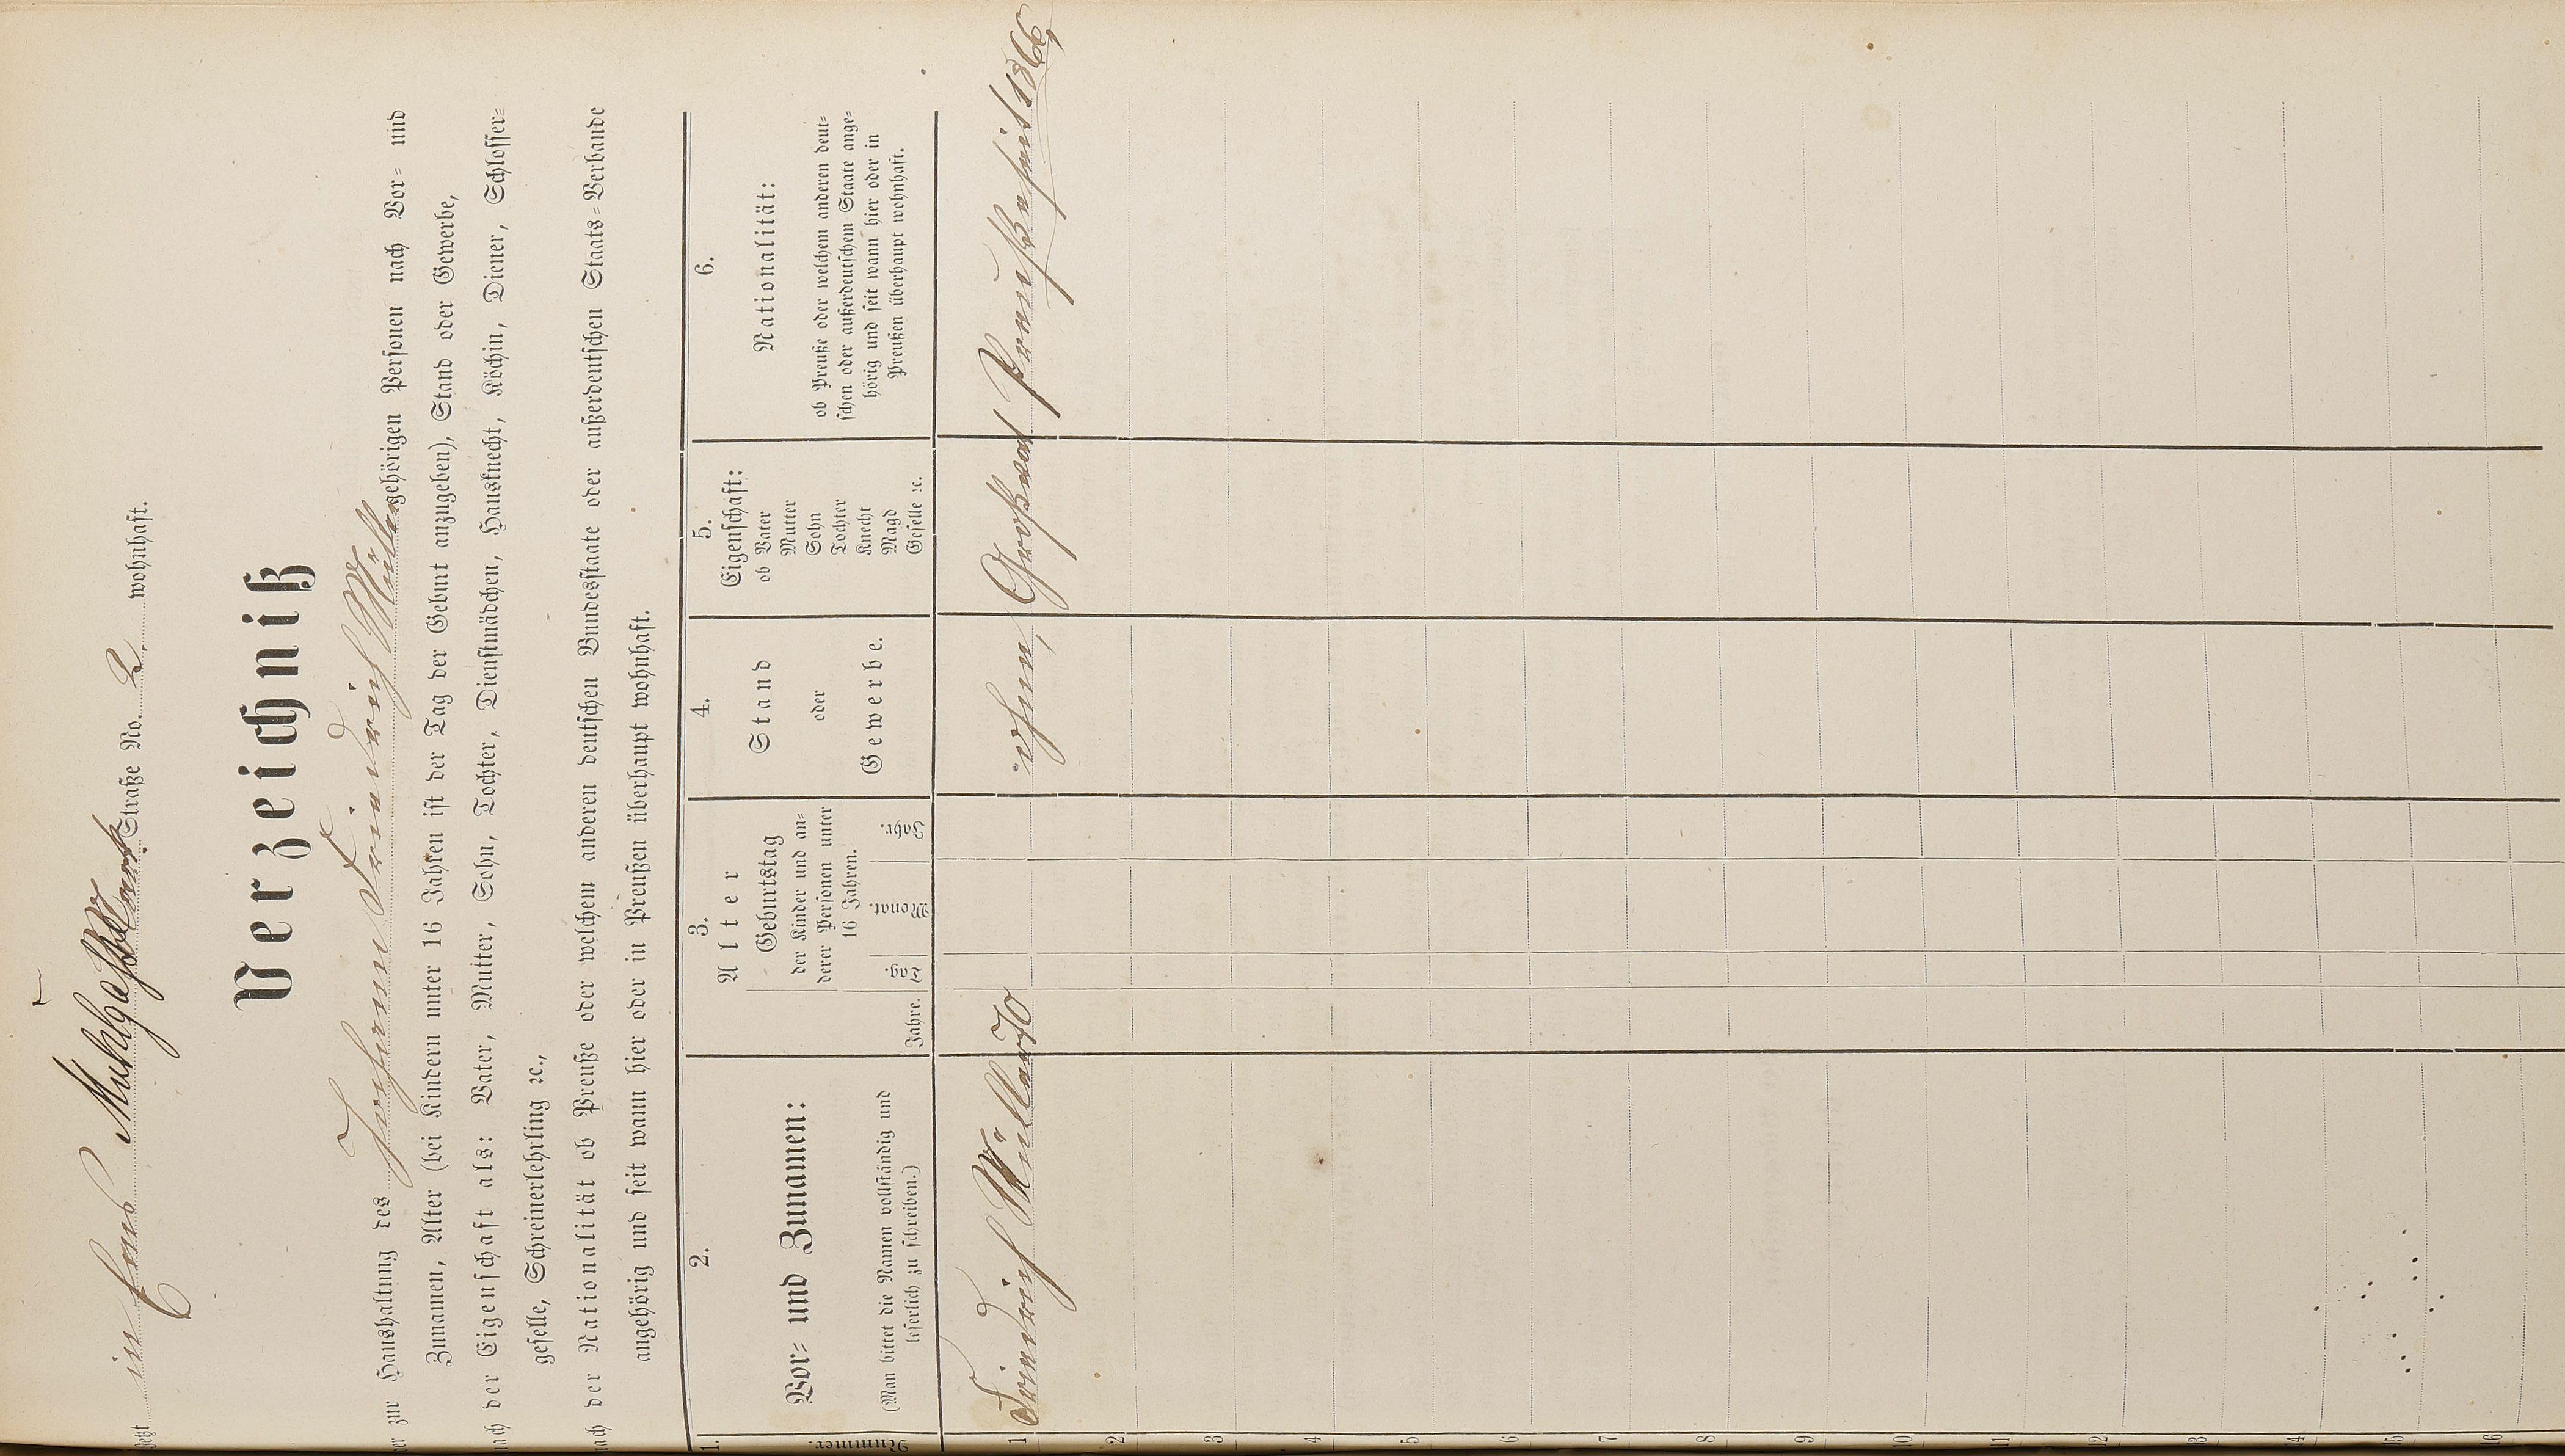 Jetzt in Ems Mühlgasse Straße No. 2. wohnhaft.
Verzeichniß
der zur Haushaltung des Johann Friedrich Müller gehörigen Personen nach Vor= und
Zunamen, Alter (bei Kindern unter 16 Jahren ist der Tag der Geburt anzugeben), Stand oder Gewerbe,
nach der Eigenschaft als: Vater, Mutter, Sohn, Tochter, Dienstmädchen, Hausknecht, Köchin, Diener, Schlosser=
geselle, Schreinerlehrling ꝛc.,
nach der Nationalität ob Preuße oder welchem anderen deutschen Bundesstaate oder außerdeutschen Staats=Verbande
angehörig und seit wann hier oder in Preußen überhaupt wohnhaft.
1.
Nummer.
2.
Vor= und Zunamen:
(Man bittet die Namen vollständig und
leserlich zu schreiben.)
3.
Alter
Jahre.
Geburtstag
der Kinder und an=
derer Personen unter
16 Jahren.
Tag.
Monat.
Jahr.
4.
Stand
oder
Gewerbe.
5.
Eigenschaft:
ob Vater
Mutter
Sohn
Tochter
Knecht
Magd
Geselle ꝛc.
6.
Nationalität:
ob Preuße oder welchem anderen deut=
schen oder außerdeutschem Staate ange=
hörig und seit wann hier oder in
Preußen überhaupt wohnhaft.
1 Friedrich Müller 70 ohne, Preuße seit 1866,
2
3
4
5
6
7
8
9
10
11
12
13
14
15
16